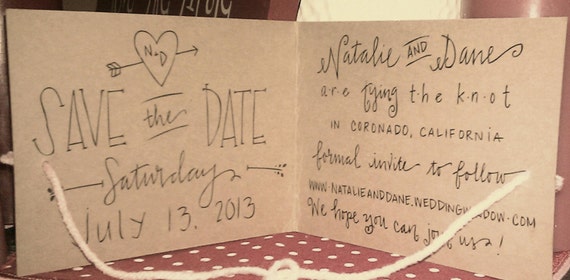 N+D
SAVE the DATE
Saturday
July 13. 2013
Natalie AND Dane
are tying the k·n·ot
IN CORONADO, CALIFORNIA
formal invite to follow
WWW.NATALIEANDDANE.WEDDINGWINDOW.COM
We hope you can join us!